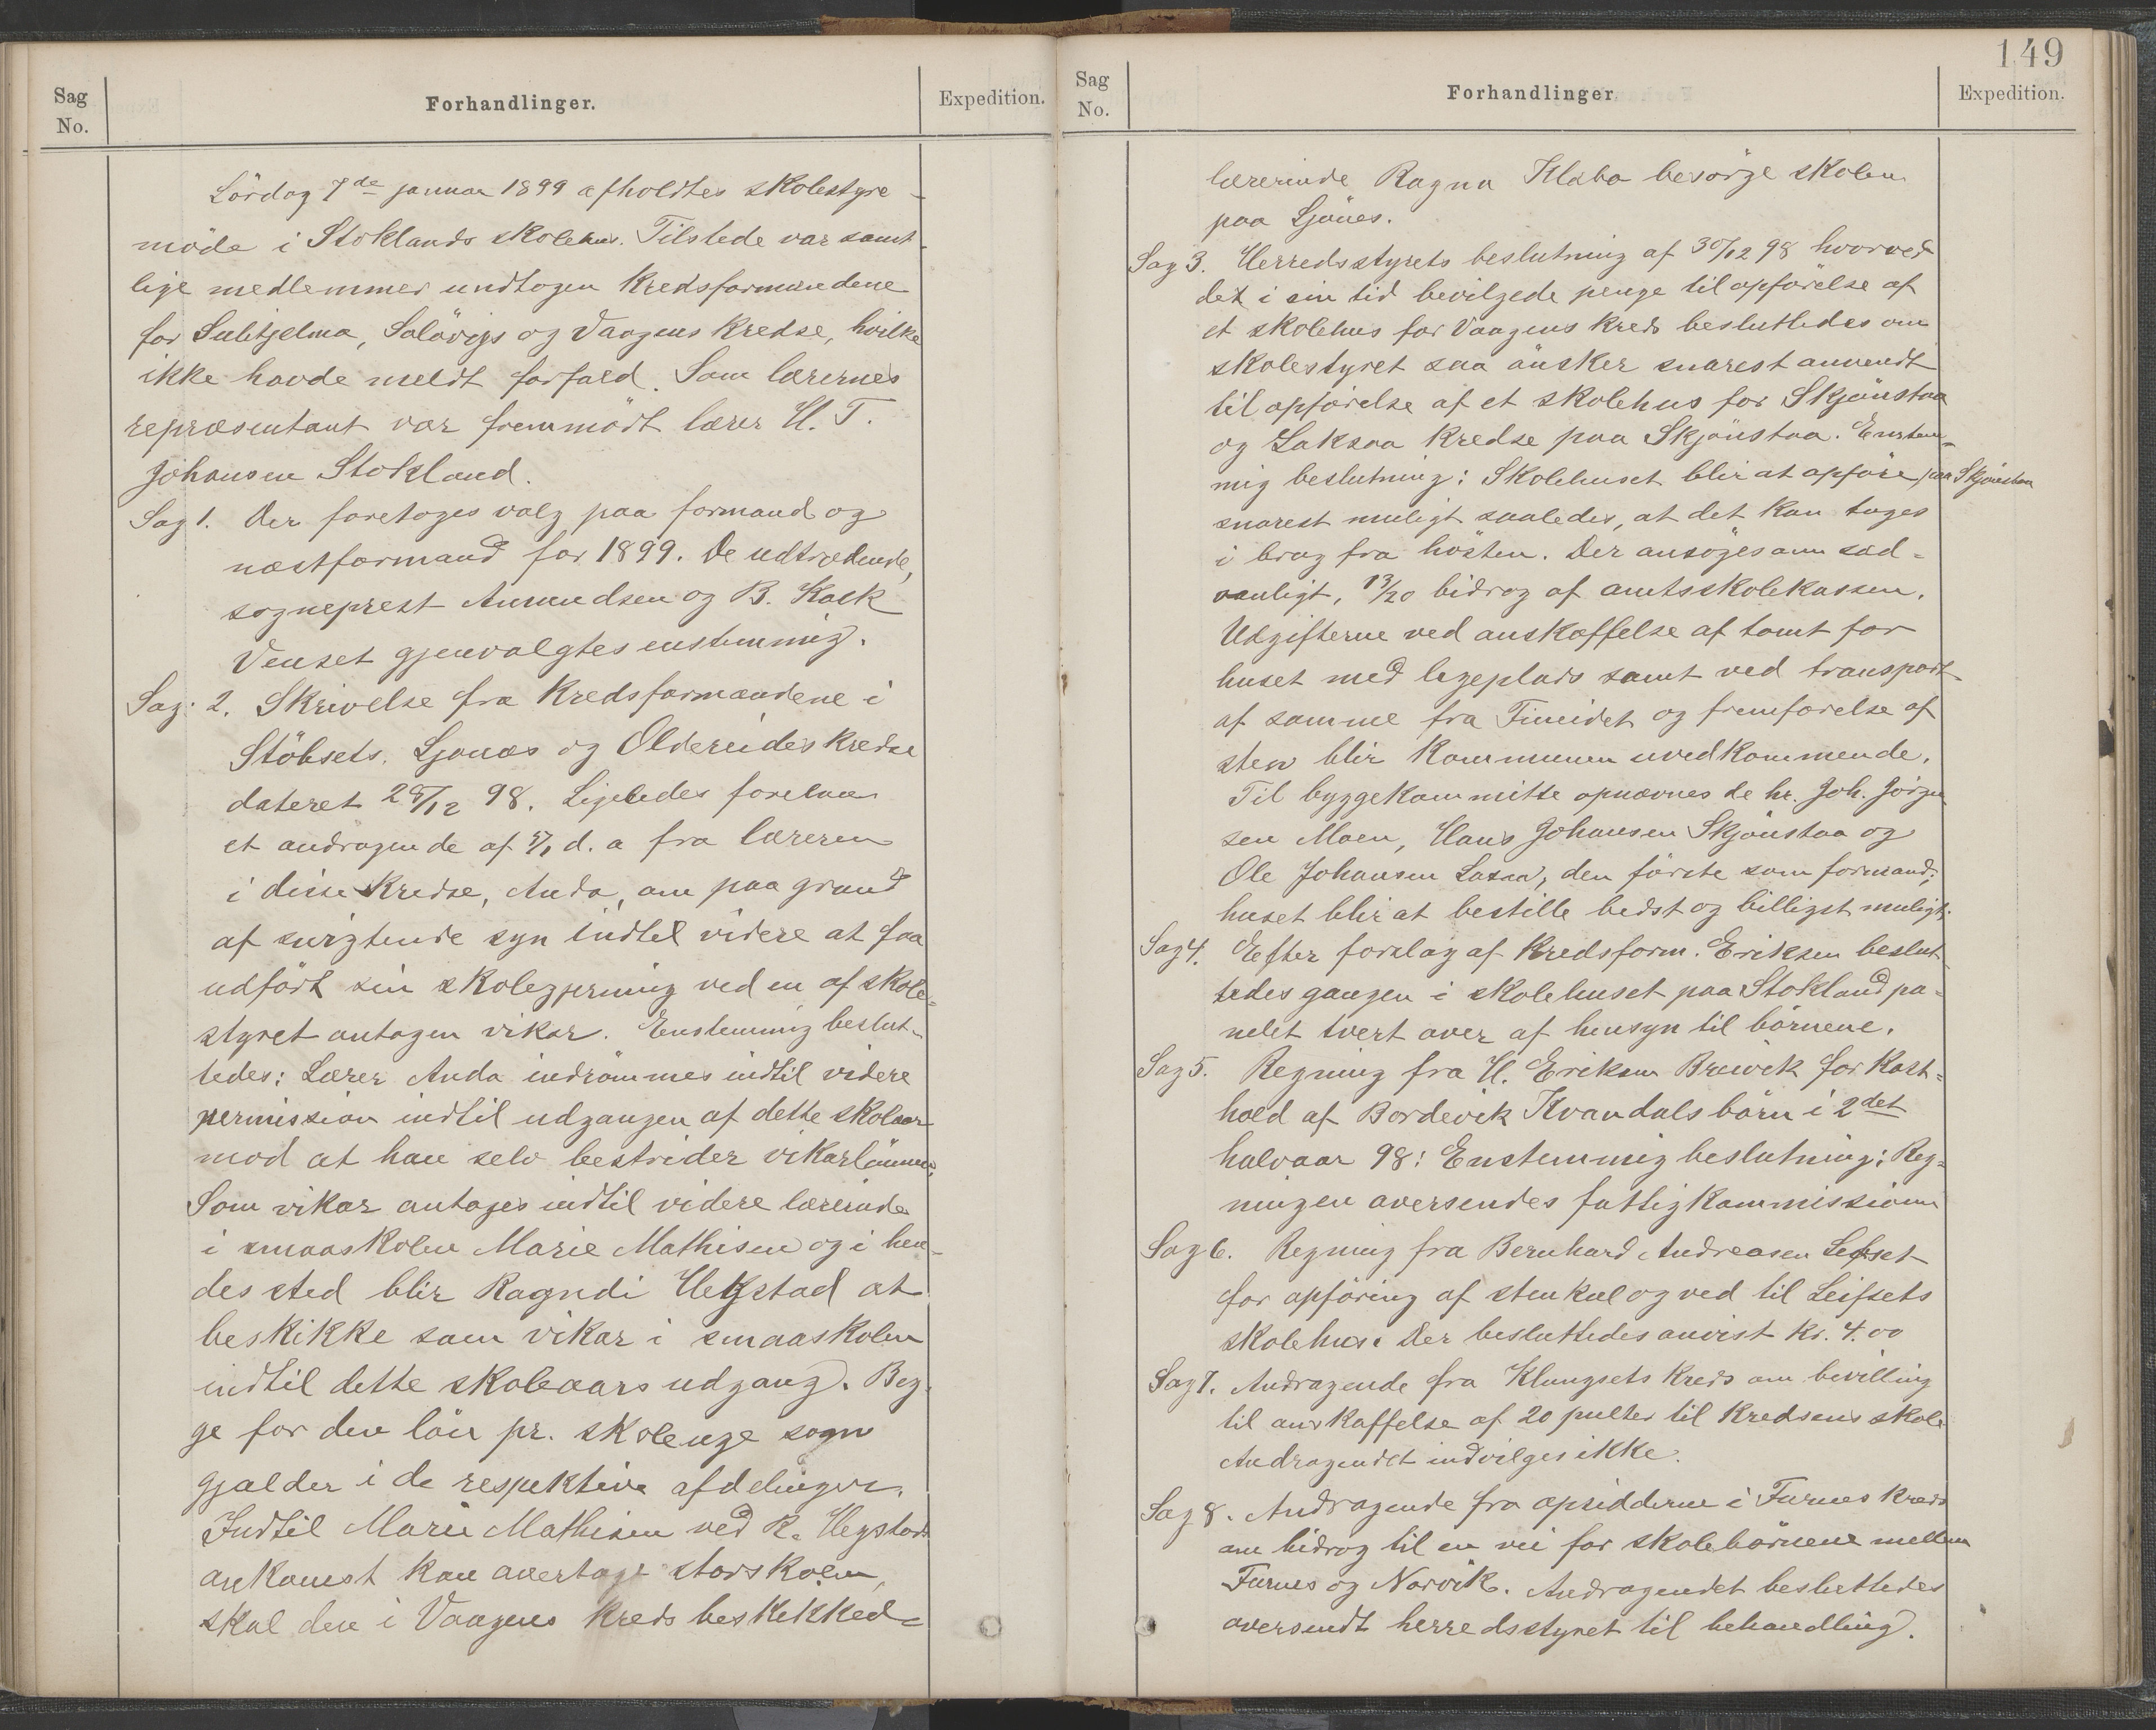 Sag
No.
Forhandlinger.
Expedition.
Lördag 7de januar 1899 afholdtes skolestyre-
möde i Stoklands skolehus. Tilstede var samt-
lige medlemmer undtagen kredsformændene
for Sulitjelma, Solövigs og Vaagens kredse, hvilke
ikke havde meldt forfald. Som lærernes
repræsentant var fremmödt lærer H. T.
Johansen Stokland.
Sag 1. Der foretoges valg paa formand og
næstformand for 1899. De udtrædende,
sogneprest Amundsen og B. Kosk
Venset gjenvalgtes enstemmig.
Sag: 2. Skrivelse fra kredsformændene i
Stöbsets, Ljönæs og Oldereides kredse
dateret 28/12 98. Ligeledes forelaa
et andragende af 5/1 d. a fra læreren
i disse kredse, Anda, om paa grund
af svigtende syn indtil videre at faa
udfört sin skolegjerning ved en af skole-
styret antagen vikar. Enstemmig beslut-
tedes: Lærer Anda indrömmes indtil videre
permission indtil udgangen af dette skoleaar
mod at han selv bestrider vikarlönnen.
Som vikar antages indtil videre lærerinde
i smaaskolen Marie Mathisen og i hen-
des sted blir Ragndi Hegstad at
beskikke som vikar i smaaskolen
indtil dette skoleaars udgang. Beg-
ge for den lön pr. skoleuge som
gjælder i de respektive afdelinger.
Indtil Marie Mathisen ved R. Hegstads
ankomst kan overtage storskolen,
skal den i Vaagens kreds beskikked-
149
Sag
No.
Forhandlinger.
Expedition.
lærerinde Ragna Klæbo besörge skolen
paa Ljönes.
Sag 3. Herredsstyrets beslutning af 30/12 98 hvorved
det i sin tid bevilgede penge til opförelse af
et skolehus for Vaagens kreds besluttedes om
skolestyret saa önsker snarest anvendt
til opförelse af et skolehus for Skjönstaa
og Laksaa kredse paa Skjönstaa. Enstem-
mig beslutning: Skolehuset blir at opföre paa Skjönstaa
snarest muligt saaledes, at det kan tages
i brug fra hösten. Der ansöges om sæd-
vanligt, 13/20 bidrag af amtsskolekassen.
Udgifterne ved anskaffelse af tomt for
huset med legeplads samt ved transport
af samme fra Fineidet og fremförelse af
sten blir kommunen uvedkommende.
Til byggekommitte opnævnes de hr. Joh. Jörgen
sen Moen, Hans Johansen Skjönstaa og
Ole Johansen Laxaa, den förste som formand;
huset blir at bestille bedst og billigst muligt.
Sag 4. Efter forslag af kredsform. Eriksen beslut-
tedes gangen i skolehuset paa Stokland pa-
nelet tvert over af hensyn til börnene.
Sag 5. Regning fra H. Eriksen Brewik for kost-
hold af Bordevik Kvandals börn i 2det
halvaar 98: Enstemmig beslutning: Reg-
ningen oversendes fattigkommissionen
Sag 6. Regning fra Bernhard Andreasen Leifset
for opföring af stenkul og ved til Leifsets
skolehus. Der besluttedes anvist kr. 4.00
Sag 7. Andragende fra Klungsets kreds om bevilling
til anskaffelse af 20 pulter til kredsens skole
Andragendet indvilges ikke.
Sag 8. Andragende fra opsidderne i Furnes kreds
om bidrag til en vei for skolebörnene mellem
Furnes og Norvik. Andragendet besluttedes
oversendt herredsstyret til behandling.